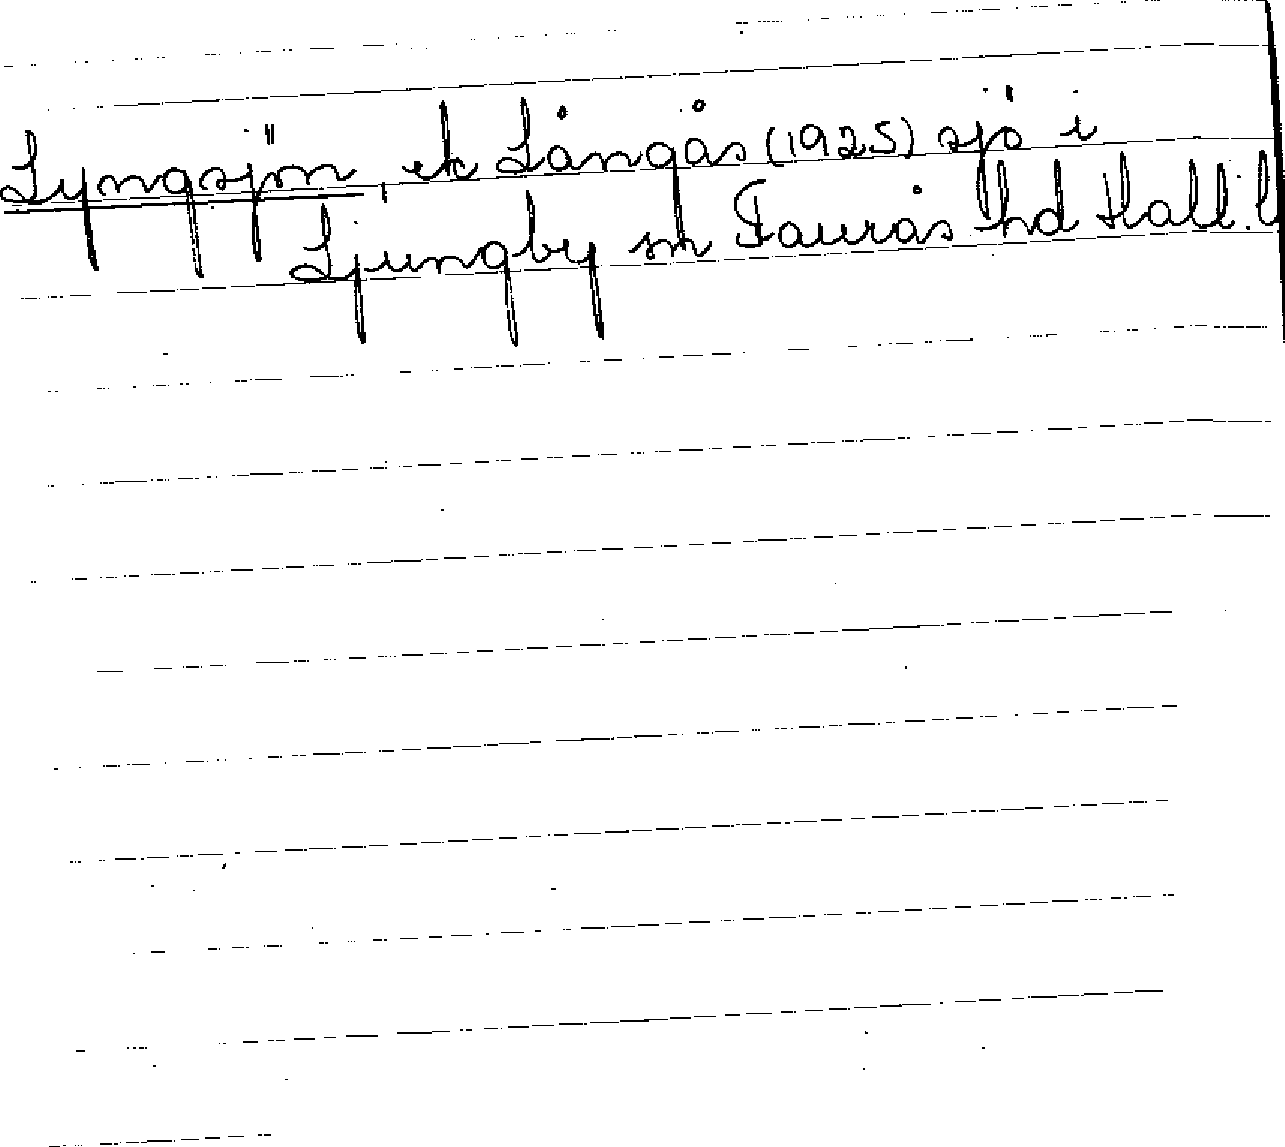 Lyngsjön, ek Långås (1925) sjö i
Ljungby sn Faurås hd Hall. l